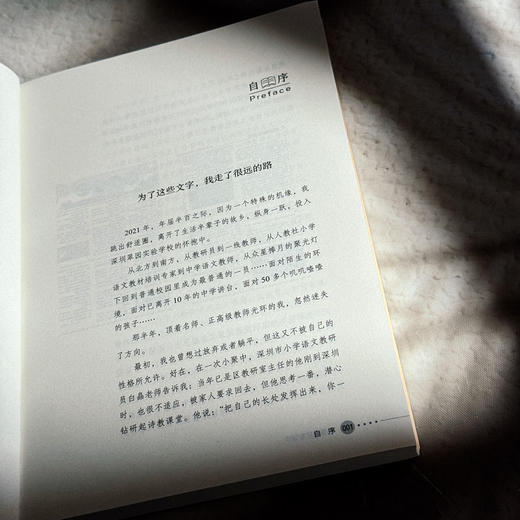 自序
Preface
为了这些文字，我走了很远的路
2021年，年届半百之际，因为一个特殊的机缘，我
跳出舒适圈，离开了生活半辈子的故乡，纵身一跃，投入
深圳翠园实验学校的怀抱中。
从北方到南方，从教研员到一线教师，从人教社小学
语文教材培训专家到中学语文教师，从众星捧月的聚光灯
下回到普通校园里成为最普通的一员……面对陌生的环
境，面对已离开10年的中学讲台，面对50多个叽叽喳喳
的孩子……
那半年，顶着名师、正高级教师光环的我，忽然迷失
了方向。
最初，我也曾想过放弃或者躺平，但这又不被自己的
性格所允许。好在，在一次小聚中，深圳市小学语文教研
员白皛老师告诉我：当年已是区教研室主任的他刚到深圳
时，也很不适应，被家人要求回去，但他思考一番，潜心
钻研起诗教课堂。他说：“把自己的长处发挥出来，你一
自序 001